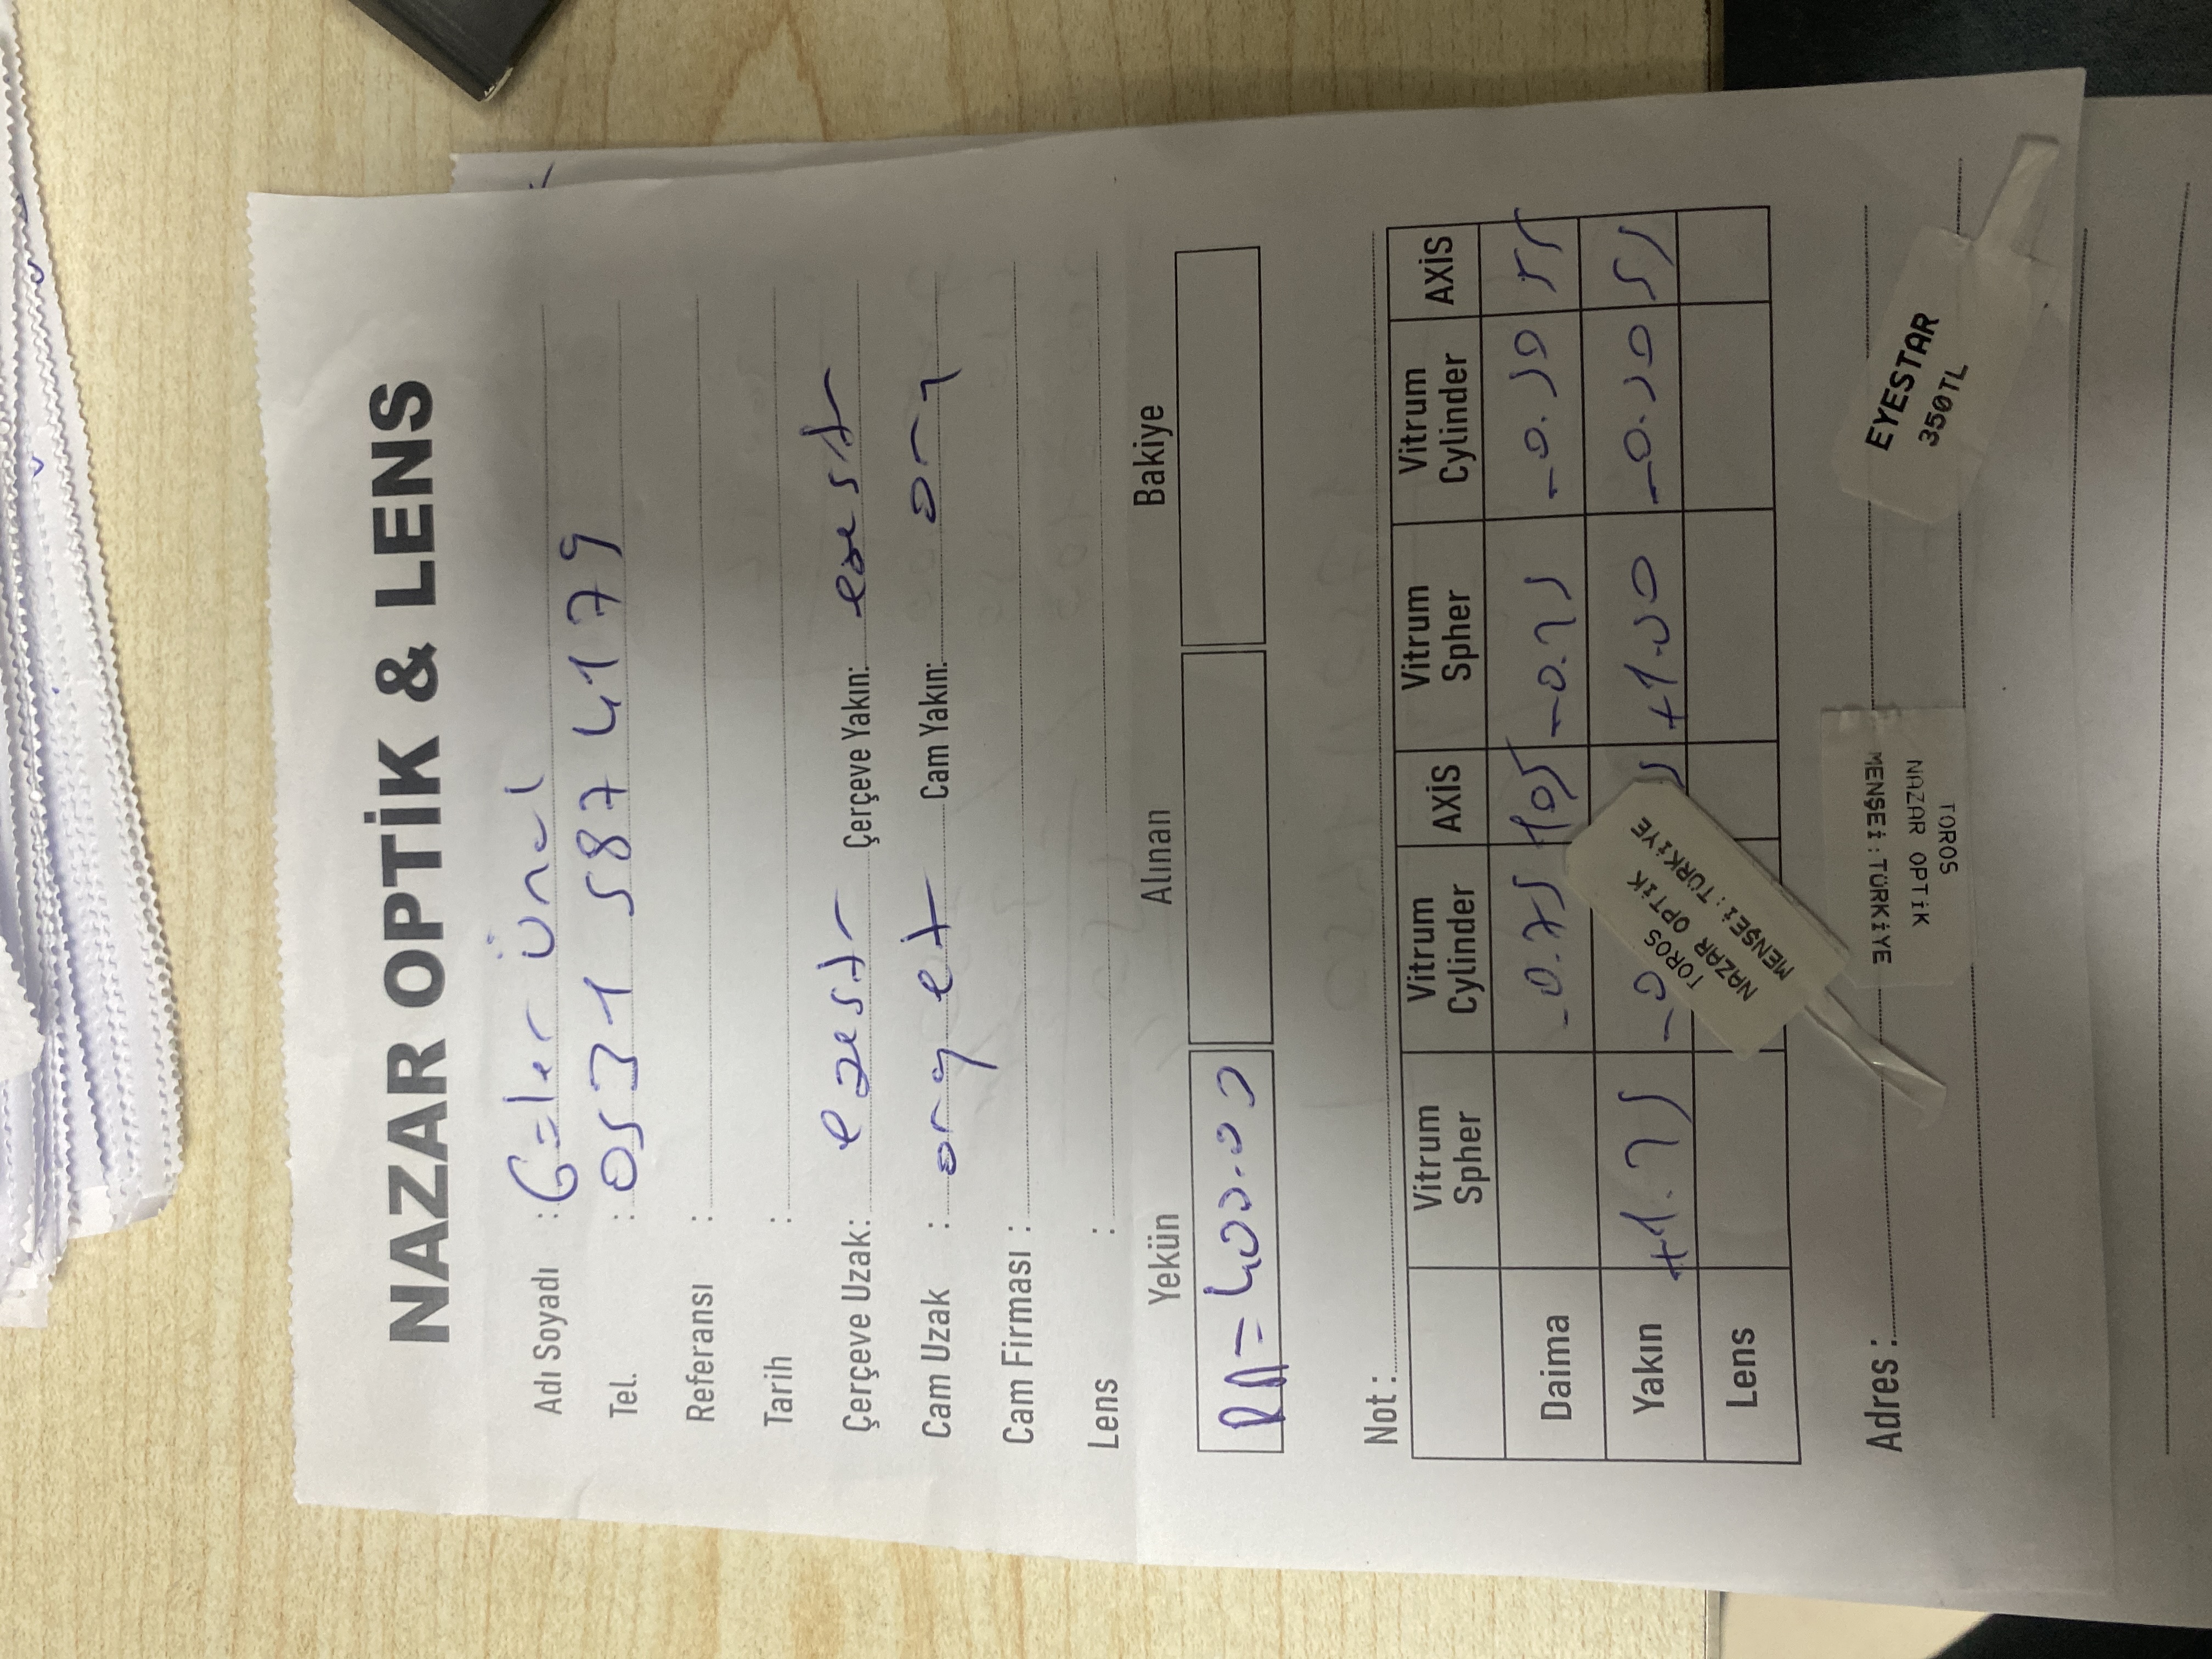 NAZAR OPTİK & LENS
Adı Soyadı : Güler Ünal
Tel. : 0531 587 4179
Referansı :
Tarih :
Çerçeve Uzak: Çerçeve Yakın:
Cam Uzak : org et Cam Yakın: org
Cam Firması :
Lens :
Yekün Alınan Bakiye
RA=400.00
Not :
Vitrum Spher Vitrum Cylinder AXİS Vitrum Spher Vitrum Cylinder AXİS
Daima -0.75 105 -0.75 -0.50 55
Yakın +1.75 -0 5 +1.00 -0.50 55
Lens
TOROS
NAZAR OPTİK
MENŞEİ:TÜRKİYE
Adres :
TOROS
NAZAR OPTİK
MENŞEİ:TÜRKİYE
EYESTAR
350TL